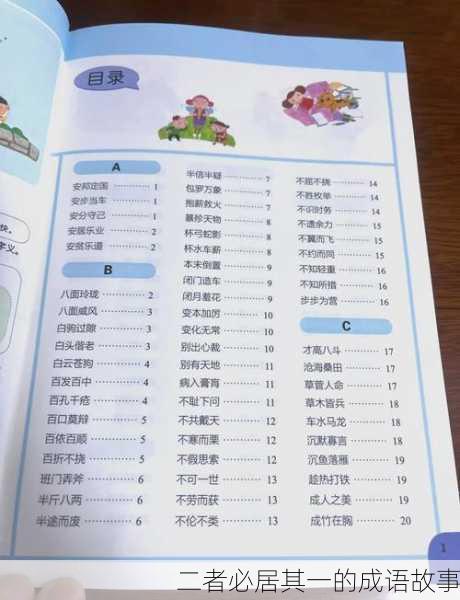 目录
A
安邦定国 ………… 1
安步当车 ………… 1
安分守己 ………… 1
安居乐业 ………… 2
安贫乐道 ………… 2
B
八面玲珑 ………… 2
八面威风 ………… 3
白驹过隙 ………… 3
白头偕老 ………… 3
白云苍狗 ………… 4
百发百中 ………… 4
百孔千疮 ………… 4
百口莫辩 ………… 5
百依百顺 ………… 5
百折不挠 ………… 5
班门弄斧 ………… 6
半斤八两 ………… 6
半途而废 ………… 6
半信半疑 ………… 7
包罗万象 ………… 7
抱薪救火 ………… 7
暴殄天物 ………… 8
杯弓蛇影 ………… 8
杯水车薪 ………… 8
本末倒置 ………… 9
闭门造车 ………… 9
闭月羞花 ………… 9
变本加厉 ………… 10
变化无常 ………… 10
别出心裁 ………… 10
别有天地 ………… 11
病入膏肓 ………… 11
不耻下问 ………… 11
不共戴天 ………… 12
不寒而栗 ………… 12
不假思索 ………… 12
不可一世 ………… 13
不劳而获 ………… 13
不伦不类 ………… 13
不屈不挠 ………… 14
不胜枚举 ………… 14
不识时务 ………… 14
不遗余力 ………… 15
不翼而飞 ………… 15
不约而同 ………… 15
不知轻重 ………… 16
不知所措 ………… 16
步步为营 ………… 16
C
才高八斗 ………… 17
沧海桑田 ………… 17
草菅人命 ………… 17
草木皆兵 ………… 18
车水马龙 ………… 18
沉默寡言 ………… 18
沉鱼落雁 ………… 19
趁热打铁 ………… 19
成人之美 ………… 19
成竹在胸 ………… 20
1
二者必居其一的成语故事